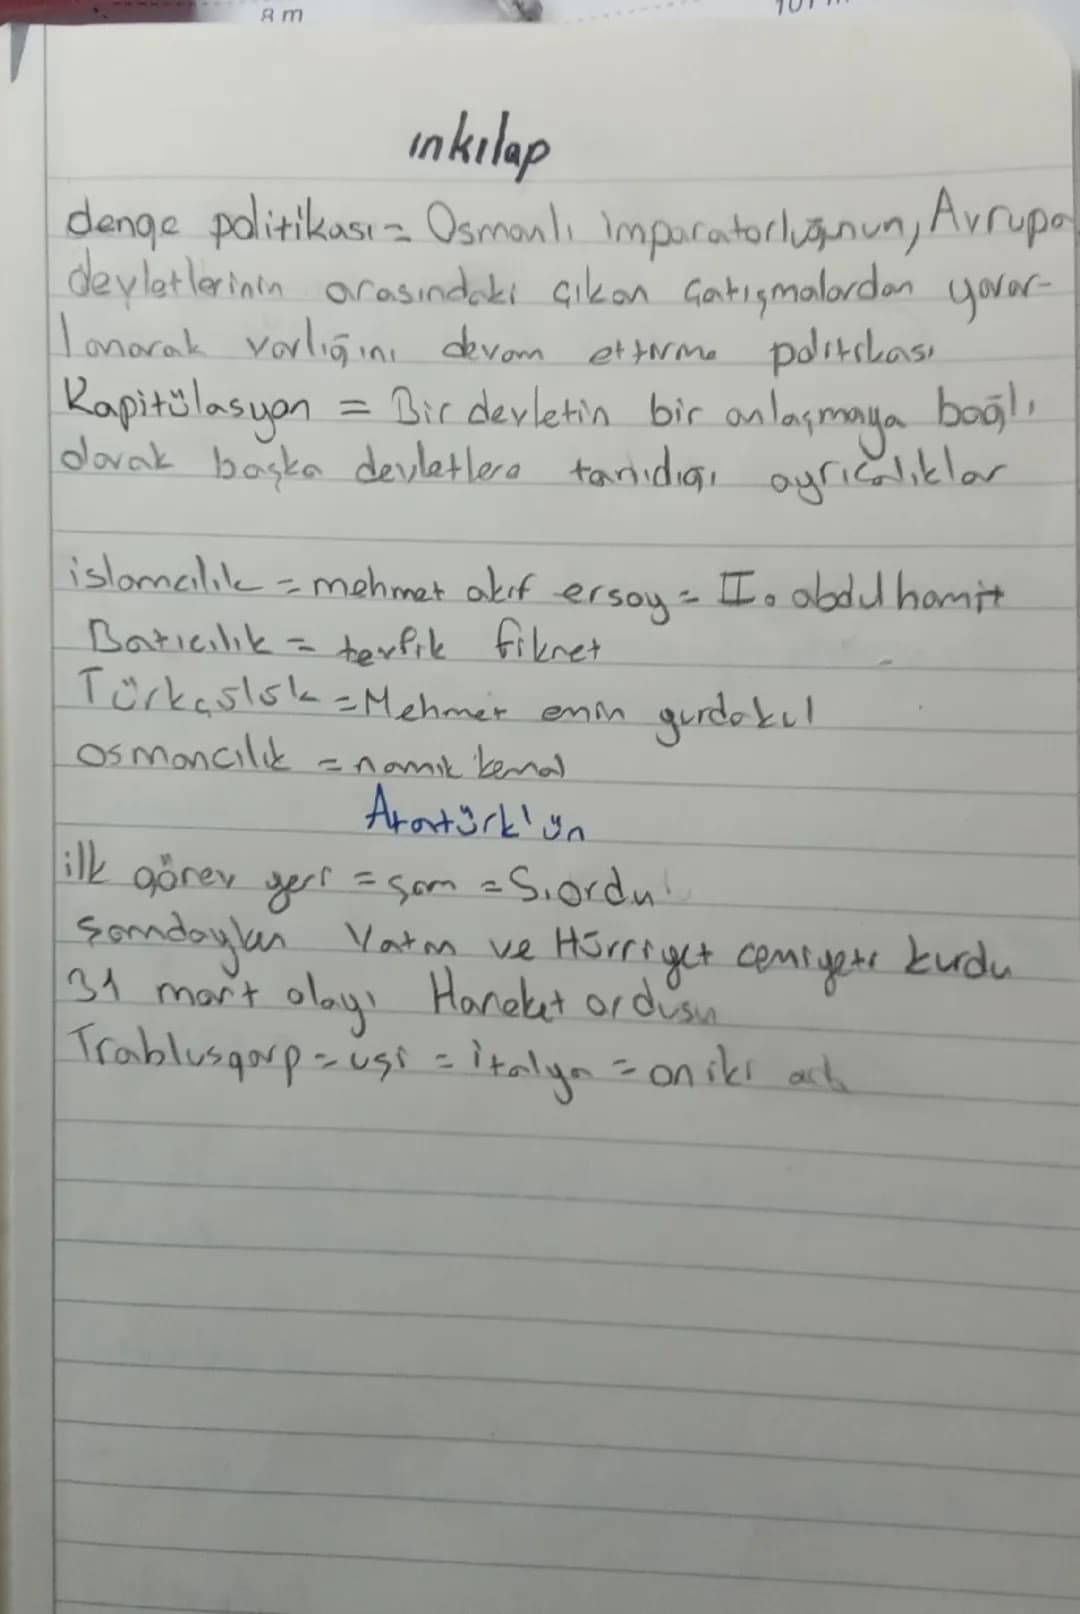 8 m
ınkılap
denge politikası = Osmanlı imparatorluğunun, Avrupa
devletlerinin arasındaki çıkan çatışmalardan yarar-
lanarak varlığını devam ettirme politikası
Kapitülasyon = Bir devletin bir anlaşmaya bağlı
olarak başka devletlere tanıdığı ayrıcalıklar
islamcılık = mehmet akif ersoy = II. abdulhamit
Batıcılık = tevfik fikret
Türkçülük = Mehmet emin yurdakul
osmancılık = namık kemal
Atatürk'ün
ilk görev yeri = şam = 5. ordu
şamdayken Vatan ve Hürriyet cemiyeti kurdu
31 mart olayı Hareket ordusu
Trablusgarp = uşi = italya = on iki ada